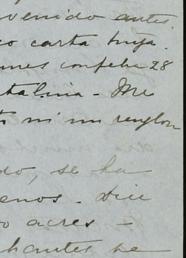 venido antes.
carta tuya.
con fecha 28
talina - Me
ni un renglon
do, se ha
enos. Dice
acres -
chantes se